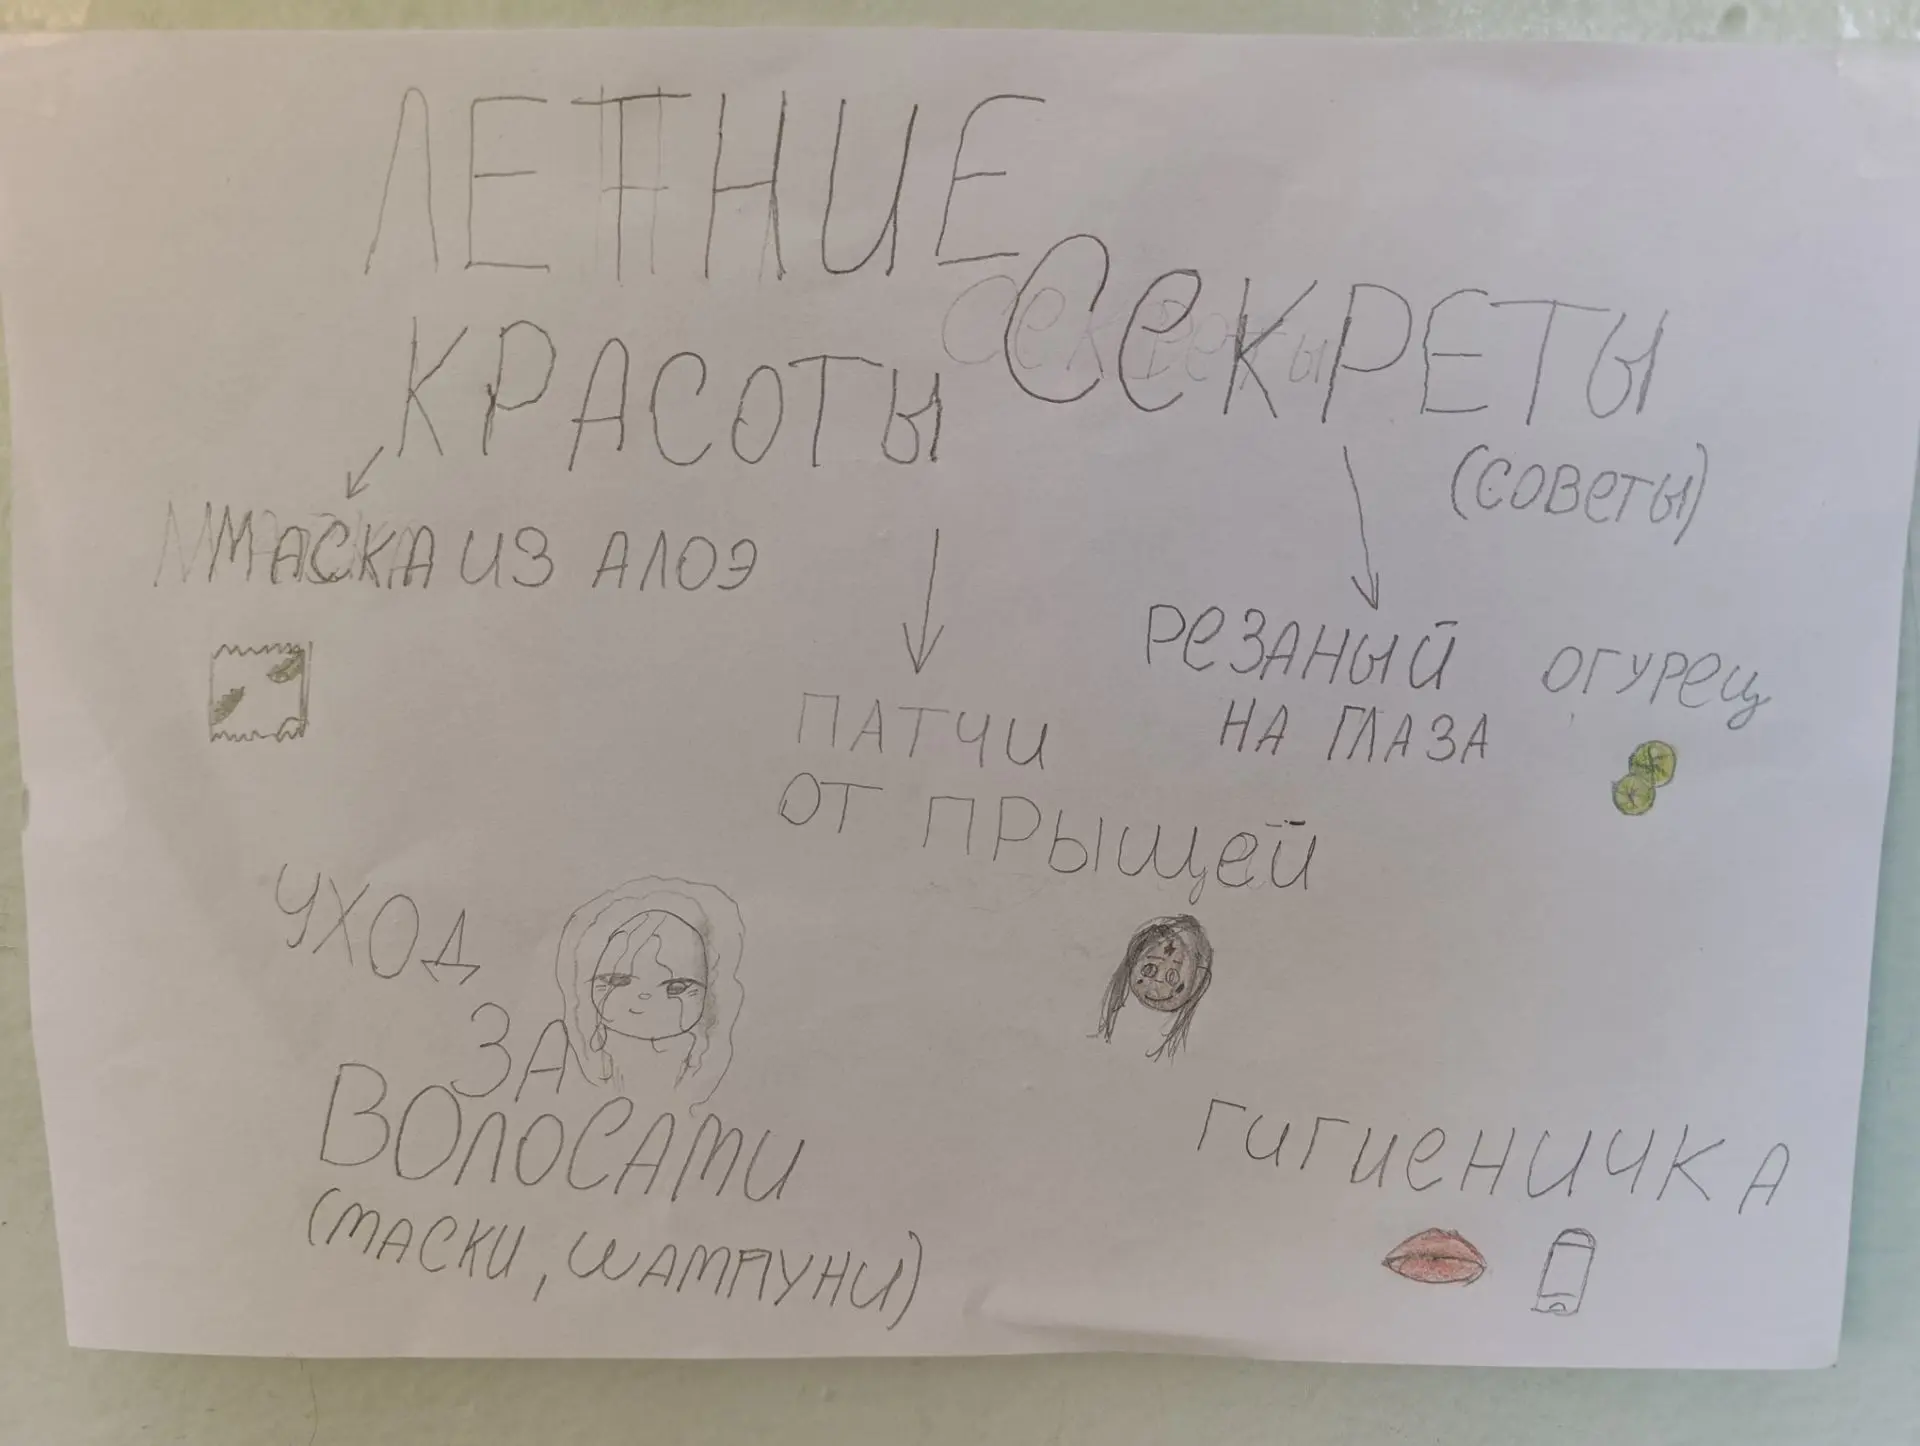 ЛЕТНИЕ
СЕКРЕТЫ
КРАСОТЫ
(СОВЕТЫ)
МАСКА ИЗ АЛОЭ
РЕЗАНЫЙ ОГУРЕЦ
НА ГЛАЗА
ПАТЧИ
ОТ ПРЫЩЕЙ
УХОД
ЗА
ВОЛОСАМИ
(МАСКИ, ШАМПУНИ)
ГИГИЕНИЧКА